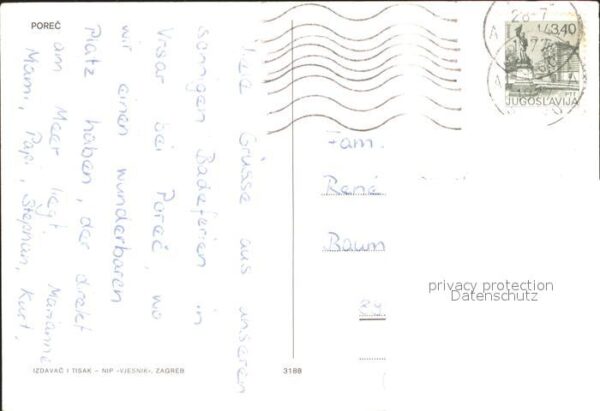 POREČ
Liebe Grüsse aus unseren
sonnigen Badeferien in
Vrsar bei Poreč, wo
wir einen wunderbaren
Platz haben, der direkt
am Meer liegt. Marianne
Mami, Papi, Stephan, Kurt.
IZDAVAČ I TISAK – NIP »VJESNIK«, ZAGREB
3188
28-7
3,40
PTT
JUGOSLAVIJA
Fam.
René
Baum
privacy protection
Datenschutz